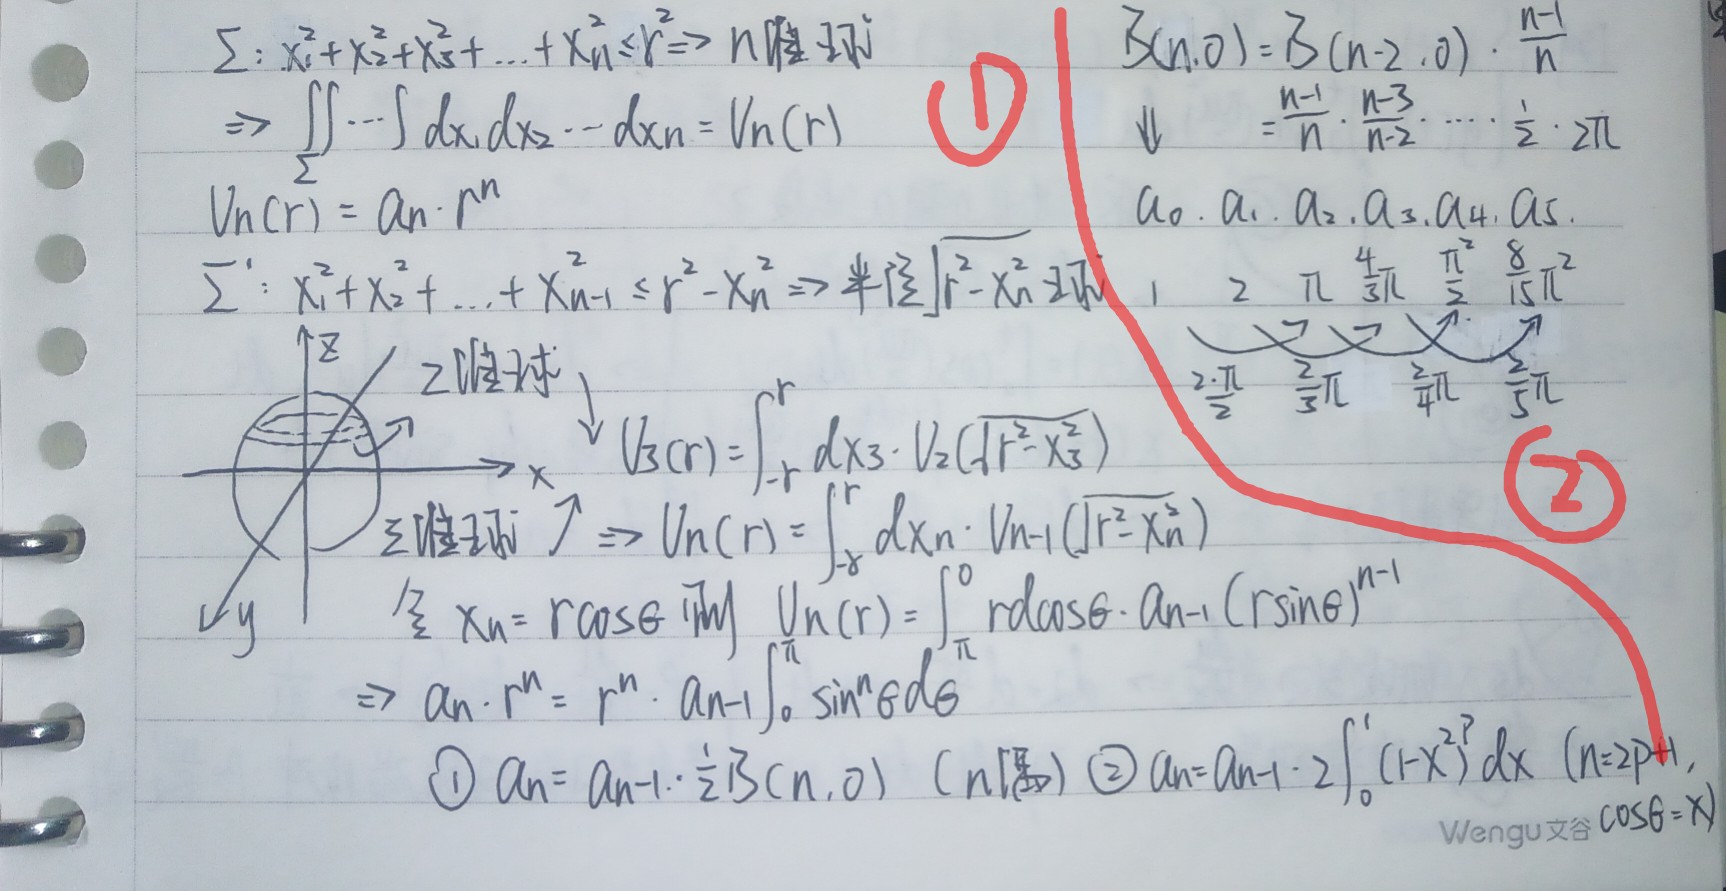 Σ: x₁²+x₂²+x₃²+...+xₙ²≤r² => n维球
=> ∬···∫ dx₁dx₂···dxₙ = Vn(r)
Σ
Vn(r) = an·rⁿ
Σ': x₁²+x₂²+...+xₙ₋₁² ≤ r²-xₙ² => 半径√(r²-xₙ²)球
z
x
y
2维球
三维球
V₃(r) = ∫₋ᵣʳ dx₃·V₂(√(r²-x₃²))
=> Vn(r) = ∫₋ᵣʳ dxn·Vn-1(√(r²-xn²))
令 xn = rcosθ 则 Vn(r) = ∫_π^0 rdcosθ·an-1(rsinθ)ⁿ⁻¹
=> an·rⁿ = rⁿ·an-1∫₀^π sinⁿθdθ
① an = an-1·½B(n,0) (n偶) ② an = an-1·2∫₀¹(1-x²)ᵖdx (n=2p+1,
cosθ=x)
①
B(n,0) = B(n-2,0)·(n-1)/n
⇓ = (n-1)/n·(n-3)/(n-2)·····1/2·2π
a₀. a₁. a₂. a₃. a₄. a₅.
1 2 π 4/3π π²/2 8/15π²
2·π/2 2/3π 2/4π 2/5π
②
Wengu文谷